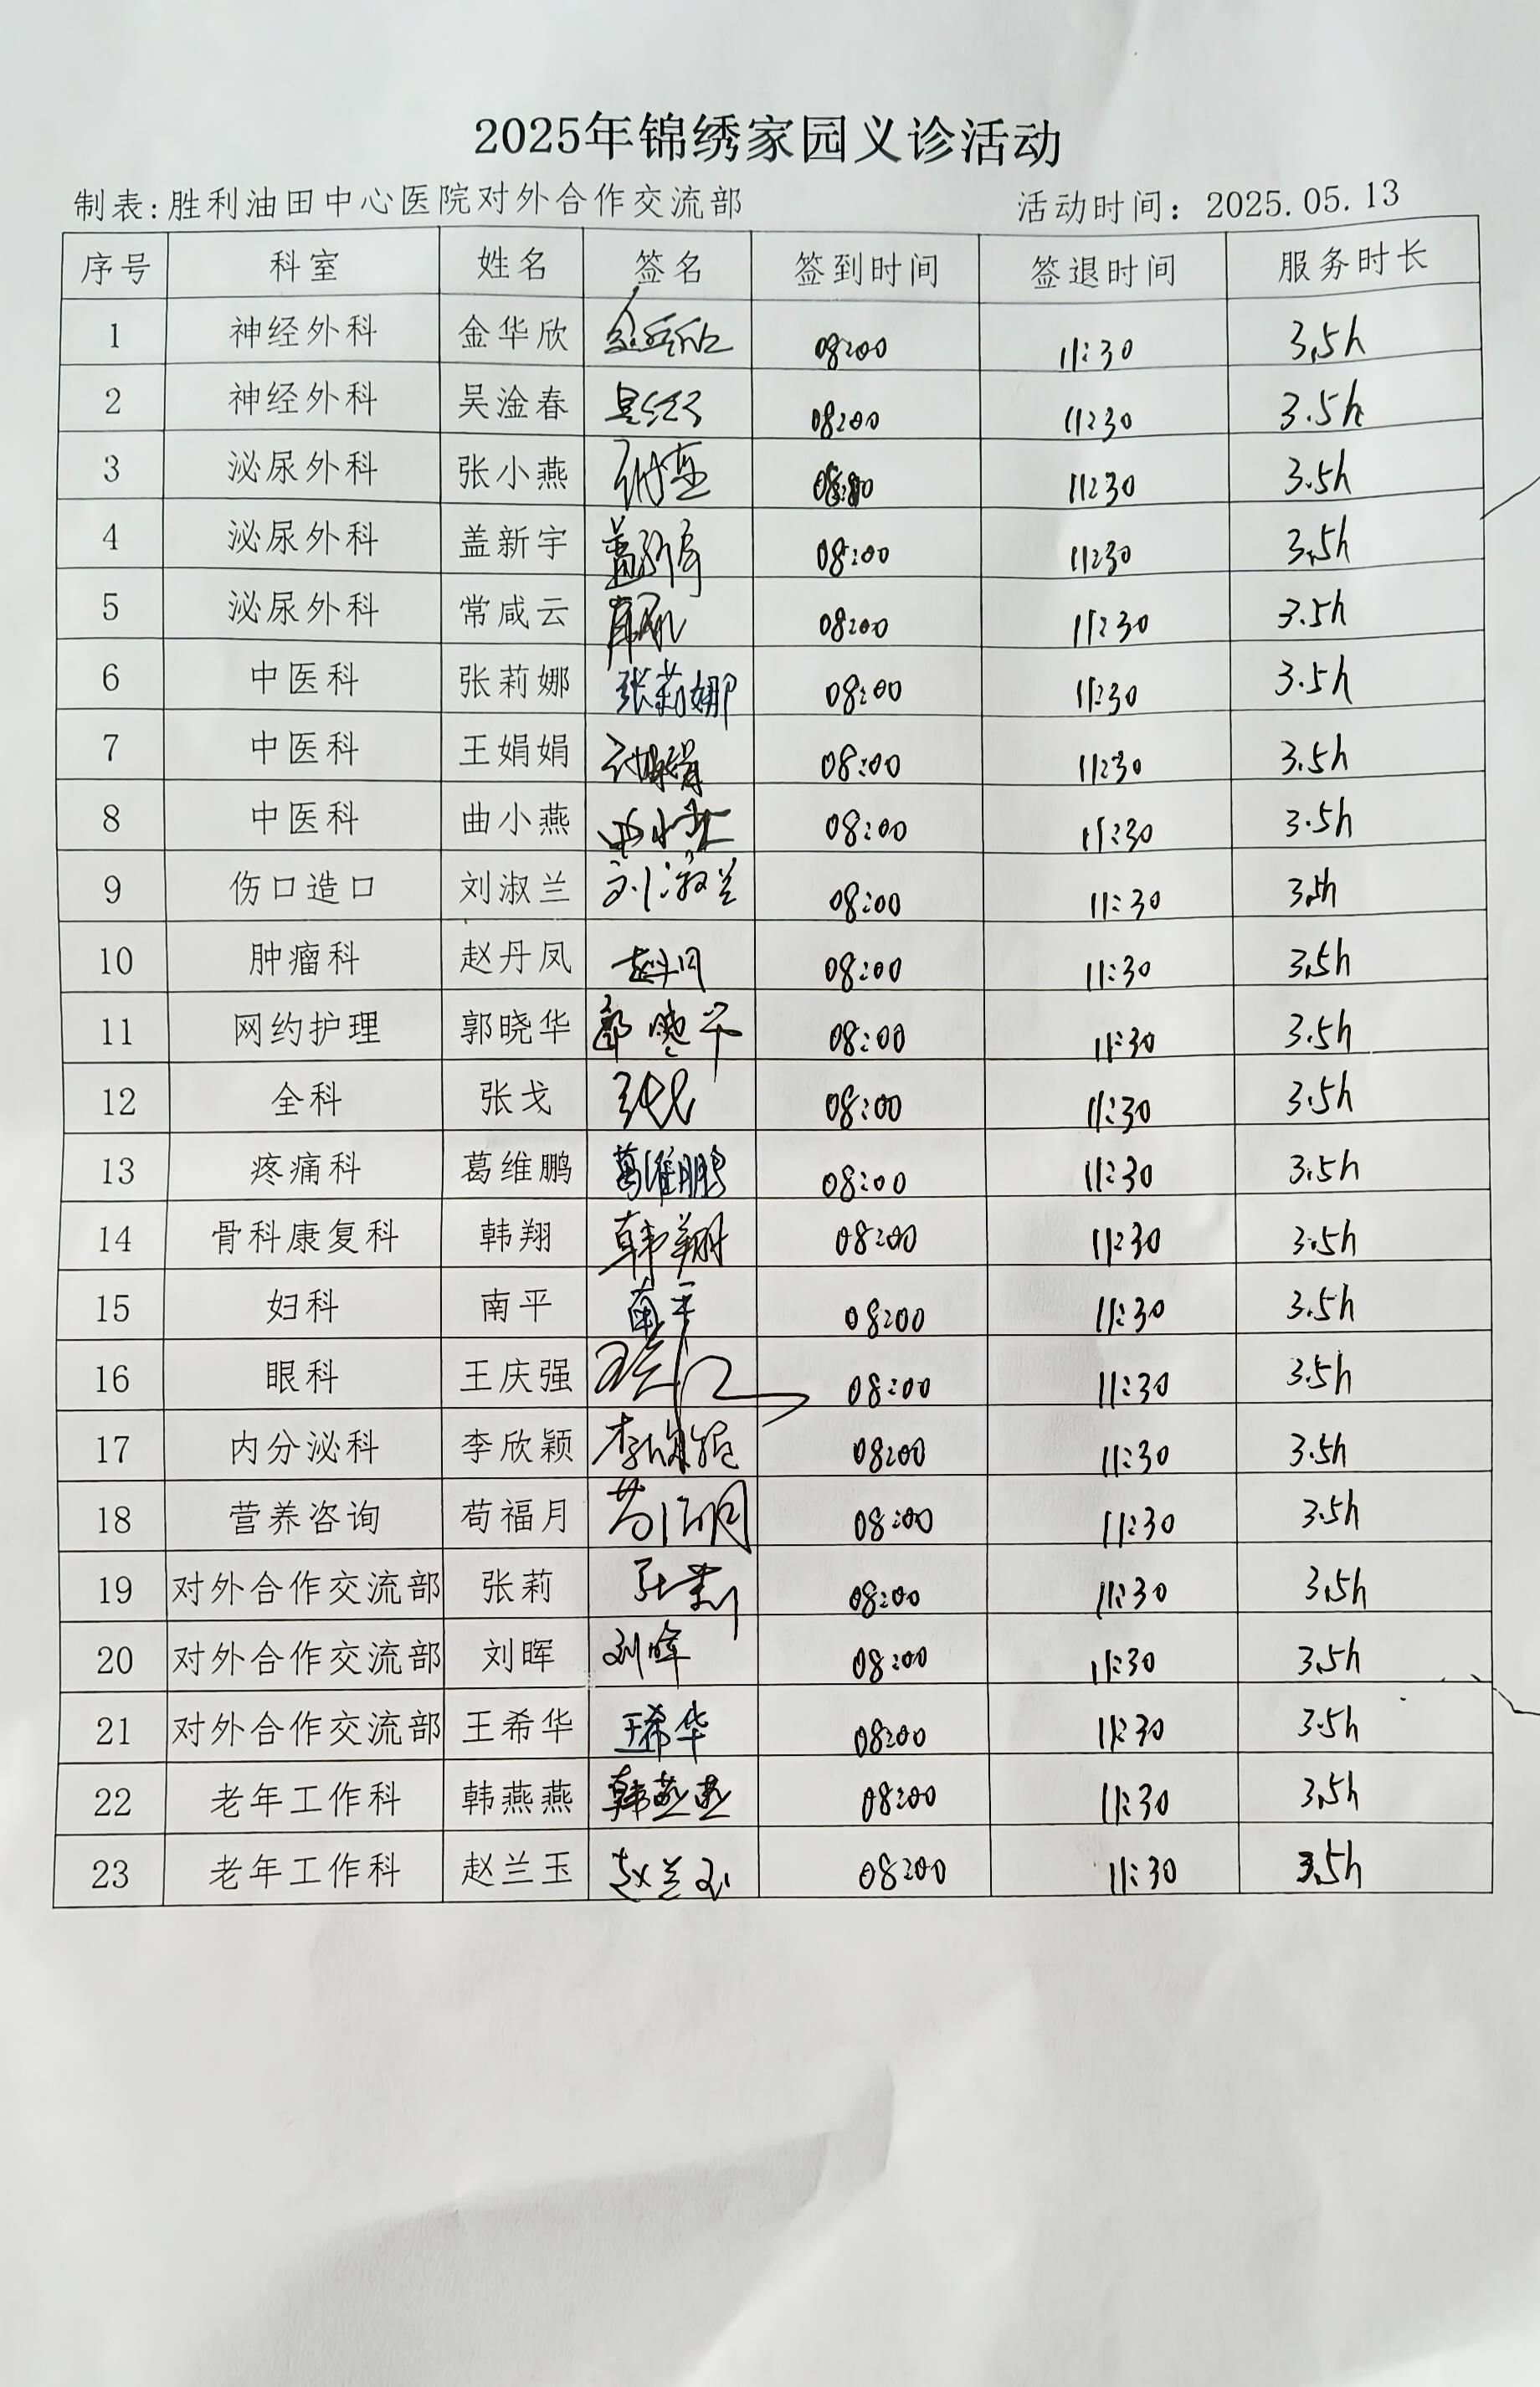 2025年锦绣家园义诊活动
制表:胜利油田中心医院对外合作交流部 活动时间：2025.05.13
序号 科室 姓名 签名 签到时间 签退时间 服务时长
1 神经外科 金华欣 金华欣 08:00 11:30 3.5h
2 神经外科 吴淦春 08:00 11:30 3.5h
3 泌尿外科 张小燕 08:00 11:30 3.5h
4 泌尿外科 盖新宇 盖新宇 08:00 11:30 3.5h
5 泌尿外科 常咸云 08:00 11:30 3.5h
6 中医科 张莉娜 张莉娜 08:00 11:30 3.5h
7 中医科 王娟娟 08:00 11:30 3.5h
8 中医科 曲小燕 曲小燕 08:00 11:30 3.5h
9 伤口造口 刘淑兰 刘淑兰 08:00 11:30 3.5h
10 肿瘤科 赵丹凤 赵丹凤 08:00 11:30 3.5h
11 网约护理 郭晓华 郭晓华 08:00 11:30 3.5h
12 全科 张戈 张戈 08:00 11:30 3.5h
13 疼痛科 葛维鹏 葛维鹏 08:00 11:30 3.5h
14 骨科康复科 韩翔 韩翔 08:00 11:30 3.5h
15 妇科 南平 南平 08:00 11:30 3.5h
16 眼科 王庆强 08:00 11:30 3.5h
17 内分泌科 李欣颖 李欣颖 08:00 11:30 3.5h
18 营养咨询 荀福月 08:00 11:30 3.5h
19 对外合作交流部 张莉 张莉 08:00 11:30 3.5h
20 对外合作交流部 刘晖 刘晖 08:00 11:30 3.5h
21 对外合作交流部 王希华 王希华 08:00 11:30 3.5h
22 老年工作科 韩燕燕 韩燕燕 08:00 11:30 3.5h
23 老年工作科 赵兰玉 赵兰玉 08:00 11:30 3.5h